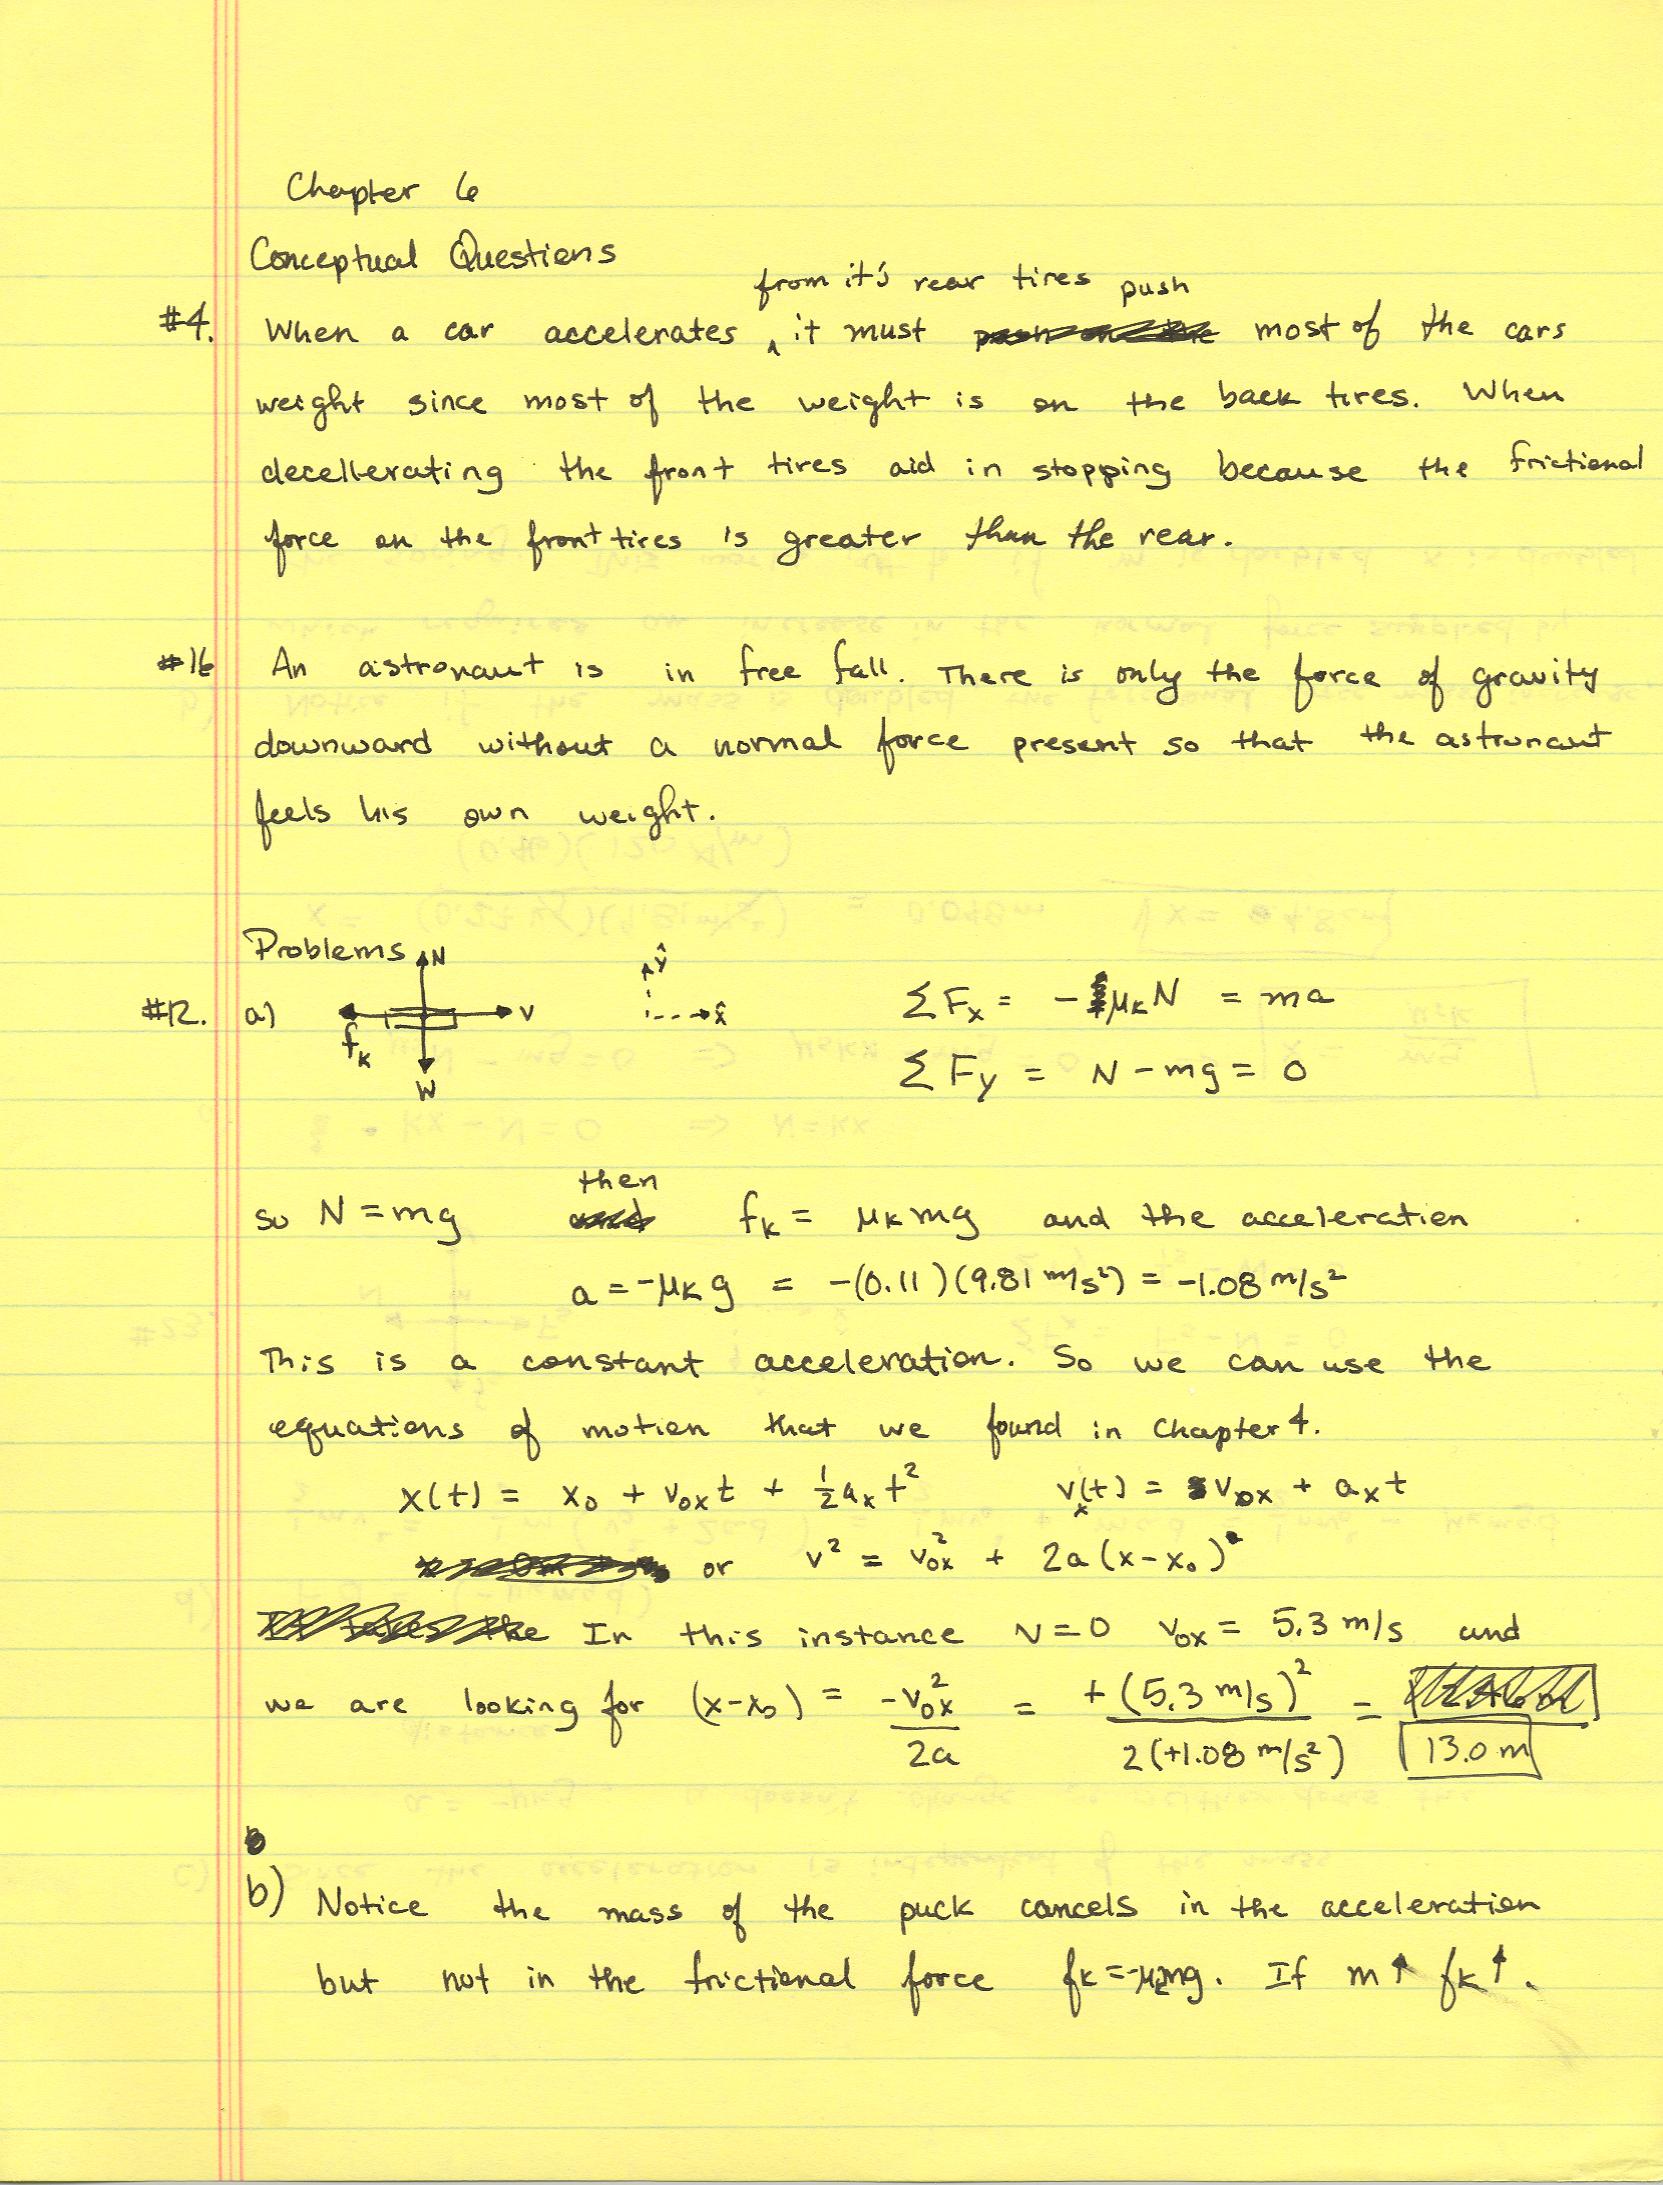 Chapter 6
Conceptual Questions
from it's rear tires push
#4. When a car accelerates ‸ it must most of the cars
weight since most of the weight is on the back tires. When
decellerating the front tires aid in stopping because the frictional
force on the front tires is greater than the rear.
#16 An astronaut is in free fall. There is only the force of gravity
downward without a normal force present so that the astronaut
feels his own weight.
Problems
#12. a) N V fk W ŷ x̂ ΣFx = -μkN = ma
ΣFy = N - mg = 0
then
so N = mg fk = μkmg and the acceleration
a = -μkg = -(0.11)(9.81 m/s²) = -1.08 m/s²
This is a constant acceleration. So we can use the
equations of motion that we found in Chapter 4.
x(t) = x₀ + v₀ₓt + ½aₓt² vₓ(t) = v₀ₓ + aₓt
or v² = v₀ₓ² + 2a(x-x₀)
In this instance v=0 v₀ₓ = 5.3 m/s and
we are looking for (x-x₀) = -v₀ₓ²/2a = +(5.3 m/s)²/2(+1.08 m/s²) = 13.0 m
b) Notice the mass of the puck cancels in the acceleration
but not in the frictional force fk=-μkmg. If m↑ fk↑.